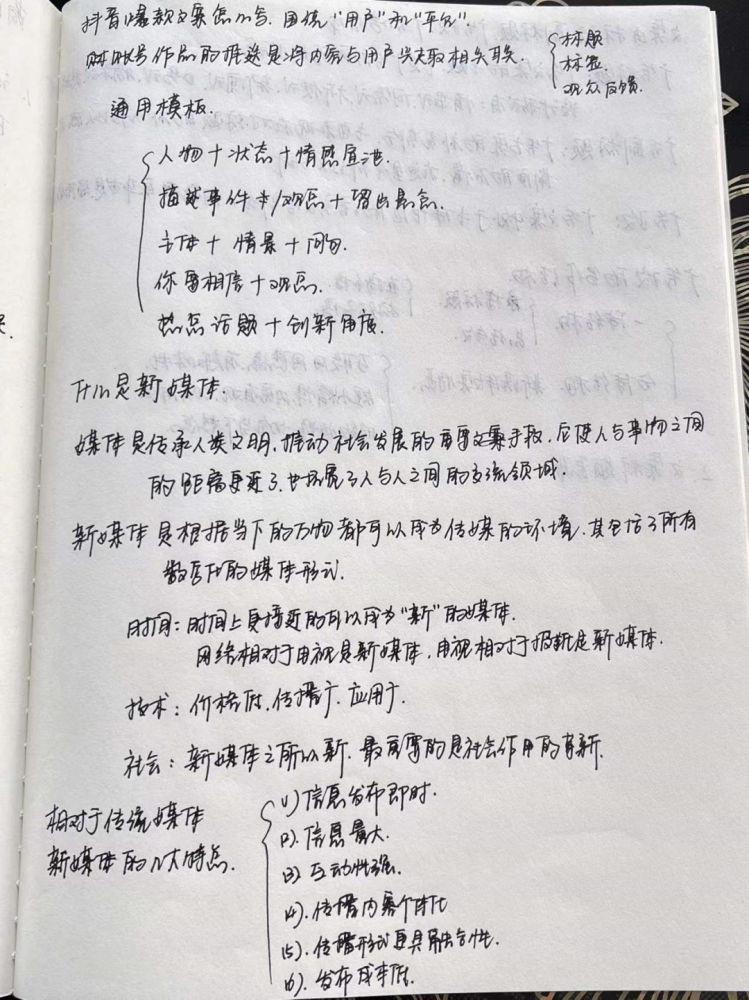 抖音爆款文案怎么写. 围绕"用户"和"平台".
对账号作品的推送是将内容与用户兴趣相关联.
标题
标签
观众反馈.
通用模板.
人物+状态+情感宣泄.
描述事件/观点+留出悬念.
主体+情景+问句.
你要相信+观点.
热点话题+创新角度.
什么是新媒体.
媒体是传承人类文明,推动社会发展的重要文案手段,它使人与事物之间
的距离更近了,也拓展了人与人之间的交流领域.
新媒体是根据当下的万物都可以成为传媒的环境,其包括了所有
数字化的媒体形式.
时间:时间上更接近的可以成为"新"的媒体.
网络相对于电视是新媒体,电视相对于报纸是新媒体.
技术:价格低,传播广,应用广.
社会:新媒体之所以新,最重要的是社会作用的有新.
相对于传统媒体
新媒体的几大特点.
(1)信息发布即时.
(2).信息量大.
(3)互动性强.
(4).传播内容个性化
(5).传播形式更具融合性.
(6).发布成本低.